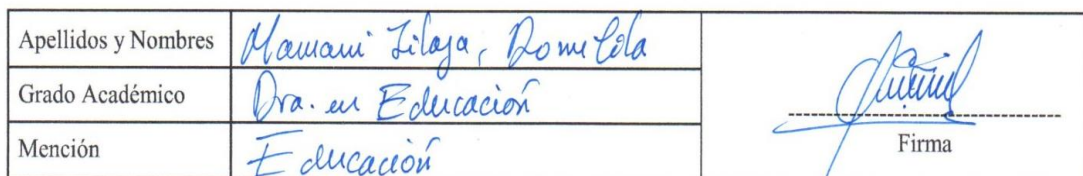 Apellidos y Nombres Mamani Jilaja, Domitila
Grado Académico Dra. en Educación
Mención Educación
Firma